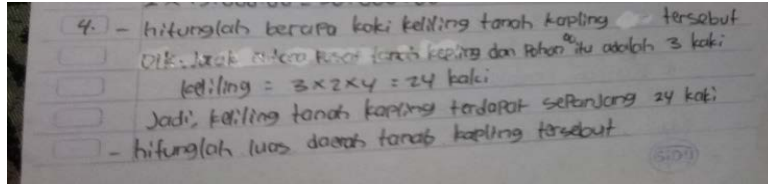 4. - hitunglah berapa kaki keliling tanah kapling tersebut
Dik. Jarak antara pusat tanah kepling dan Pohon itu adalah 3 kaki
keliling = 3 x 2 x 4 = 24 kaki
Jadi, keliling tanah kapling terdapat sepanjang 24 kaki
- hitunglah luas daerah tanah kapling tersebut